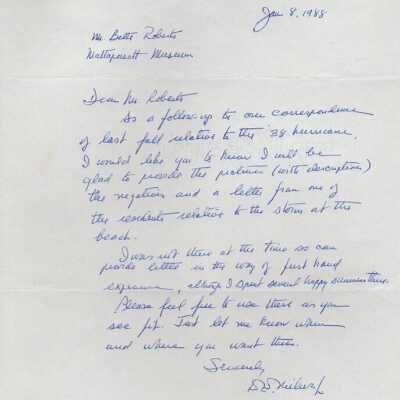 Jan 8, 1988
Ms Bette Roberts
Mattapoisett Museum
Dear Ms Roberts
As a follow up to our correspondence
of last fall relative to the '38 hurricane,
I would like you to know I will be
glad to provide the pictures (with descriptions)
the negatives and a letter from one of
the residents relative to the storm at the
beach.
I was not there at the time so can
provide little in the way of first hand
experience, altho I spent several happy summers there.
Please feel free to use these as you
see fit. Just let me know when
and where you want them.
Sincerely